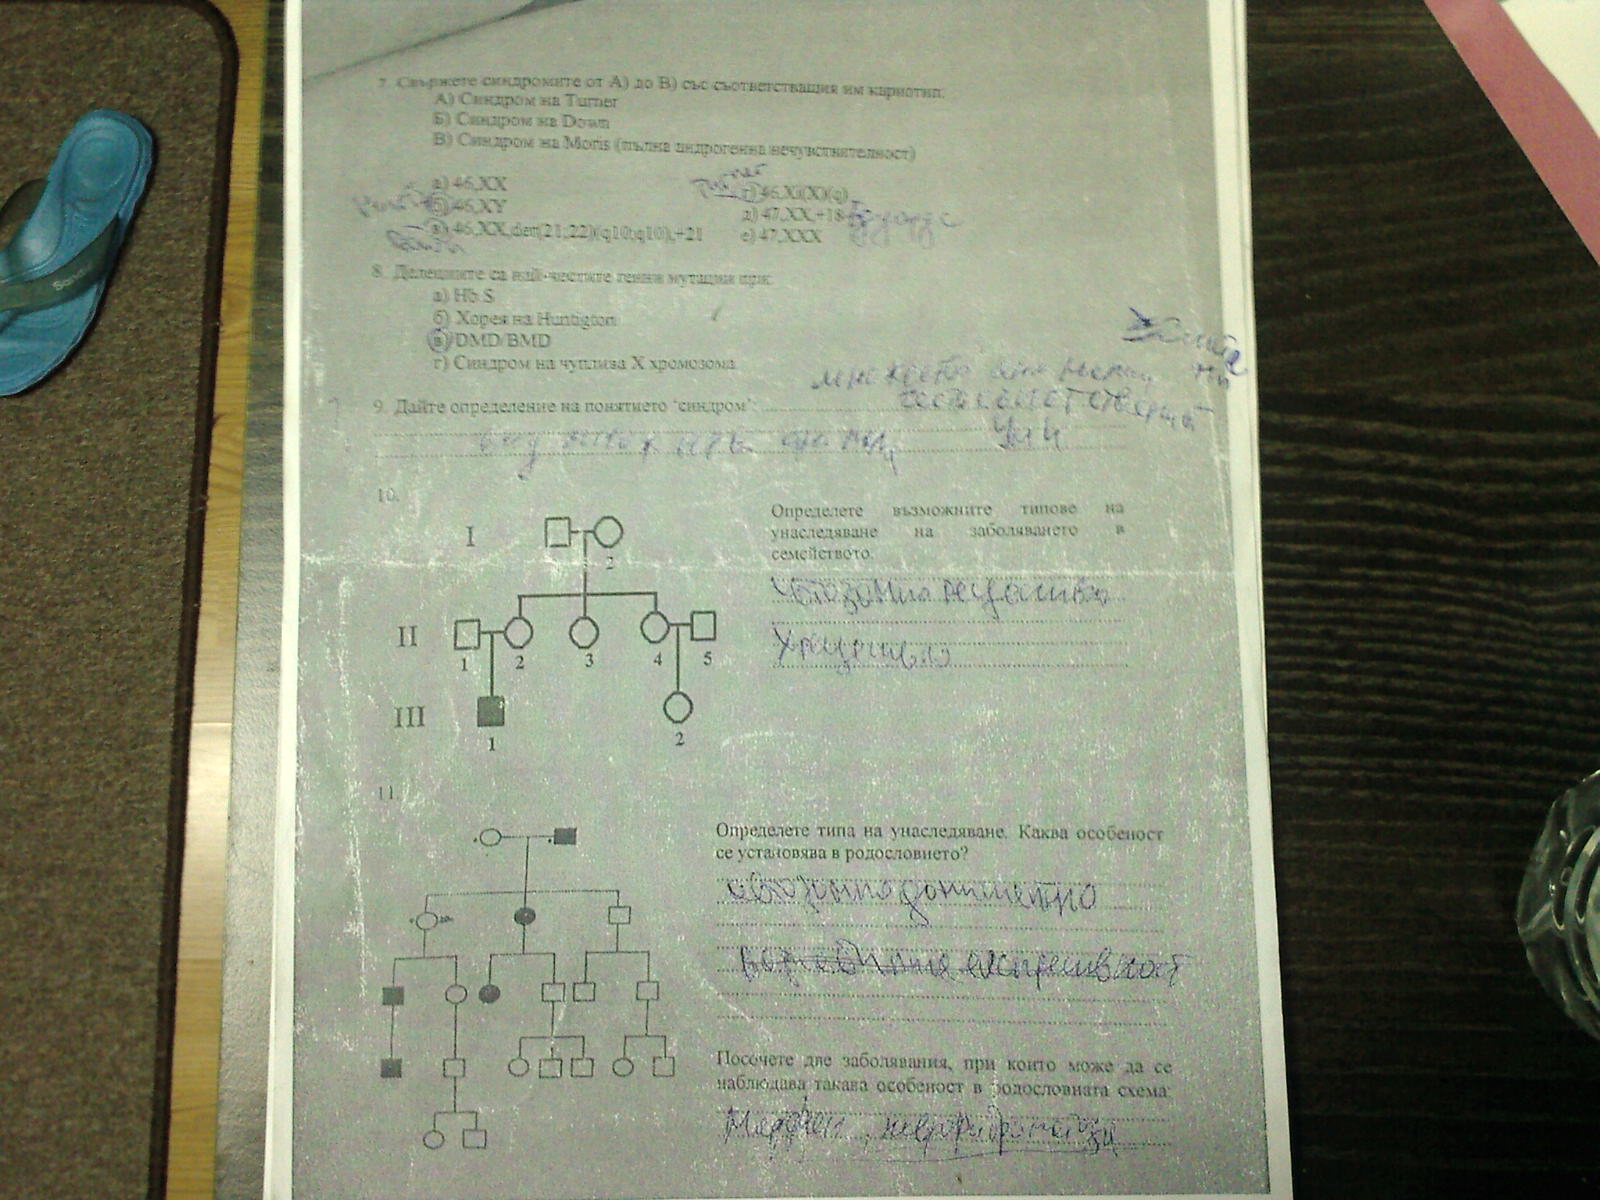 7. Свържете синдромите от А) до В) със съответстващия им кариотип:
А) Синдром на Turner
Б) Синдром на Down
В) Синдром на Moris (пълна андрогенна нечувствителност)
а) 46,XX
б) 46,XY
в) 46,XX,der(21;22)(q10;q10),+21
г) 46,Xi(X)(q)
д) 47,XX,+18
е) 47,XXX
8. Делециите са най-честите генни мутации при:
а) Hb S
б) Хорея на Huntigton
в) DMD/BMD
г) Синдром на чуплива Х хромозома
9. Дайте определение на понятието ‘синдром’:
10.
I
2
II
1 2 3 4 5
III
1 2
Определете възможните типове на
унаследяване на заболяването в
семейството.
Автозомно рецесивно
Х рецесивно
11.
Определете типа на унаследяване. Каква особеност
се установява в родословието?
автозомно доминантно
експресивност
Посочете две заболявания, при които може да се
наблюдава такава особеност в родословната схема:
Марфан, неврофиброматоза